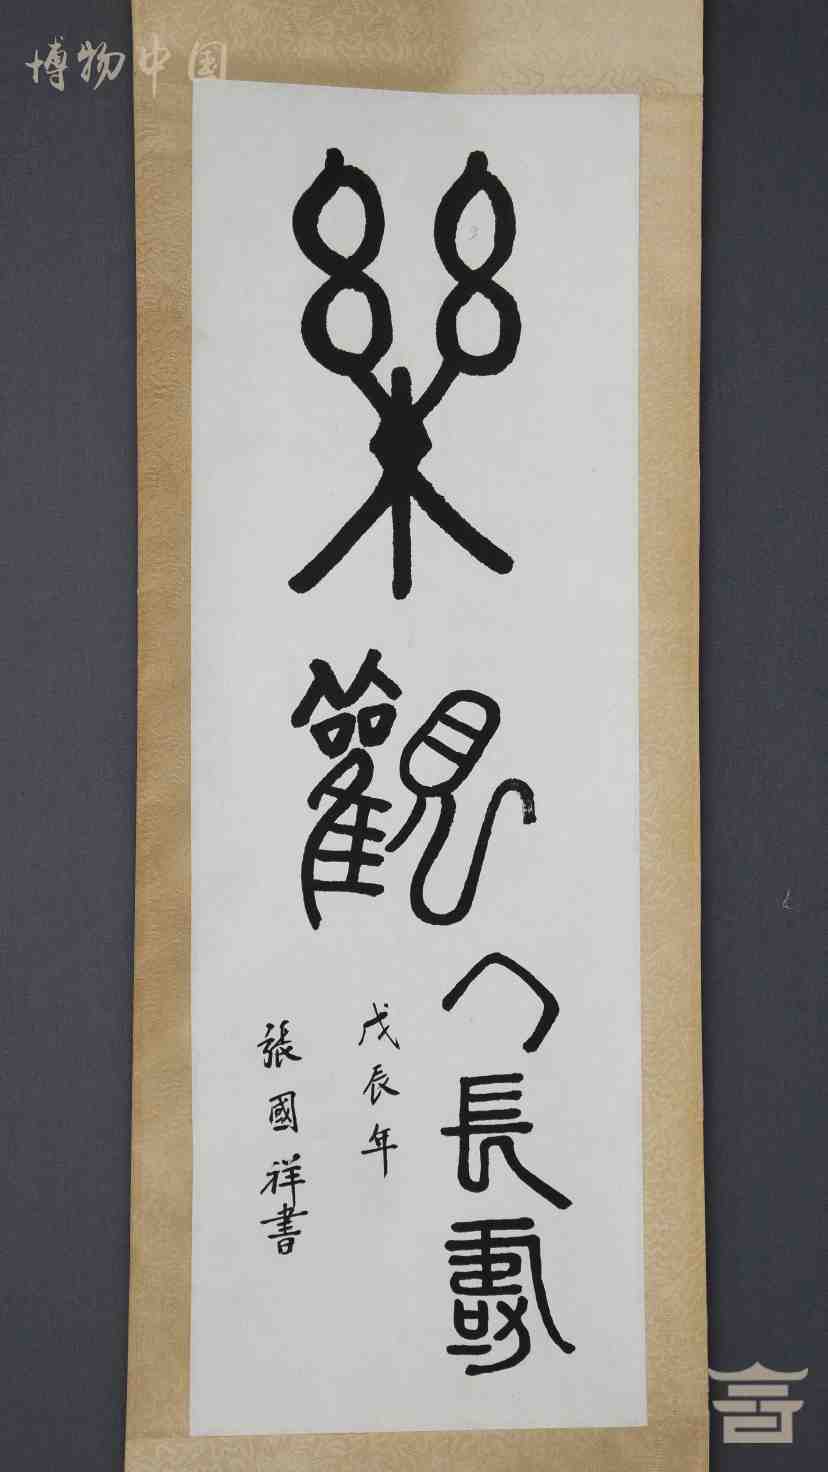 博物中国
樂觀
人長壽
戊辰年
張國祥書